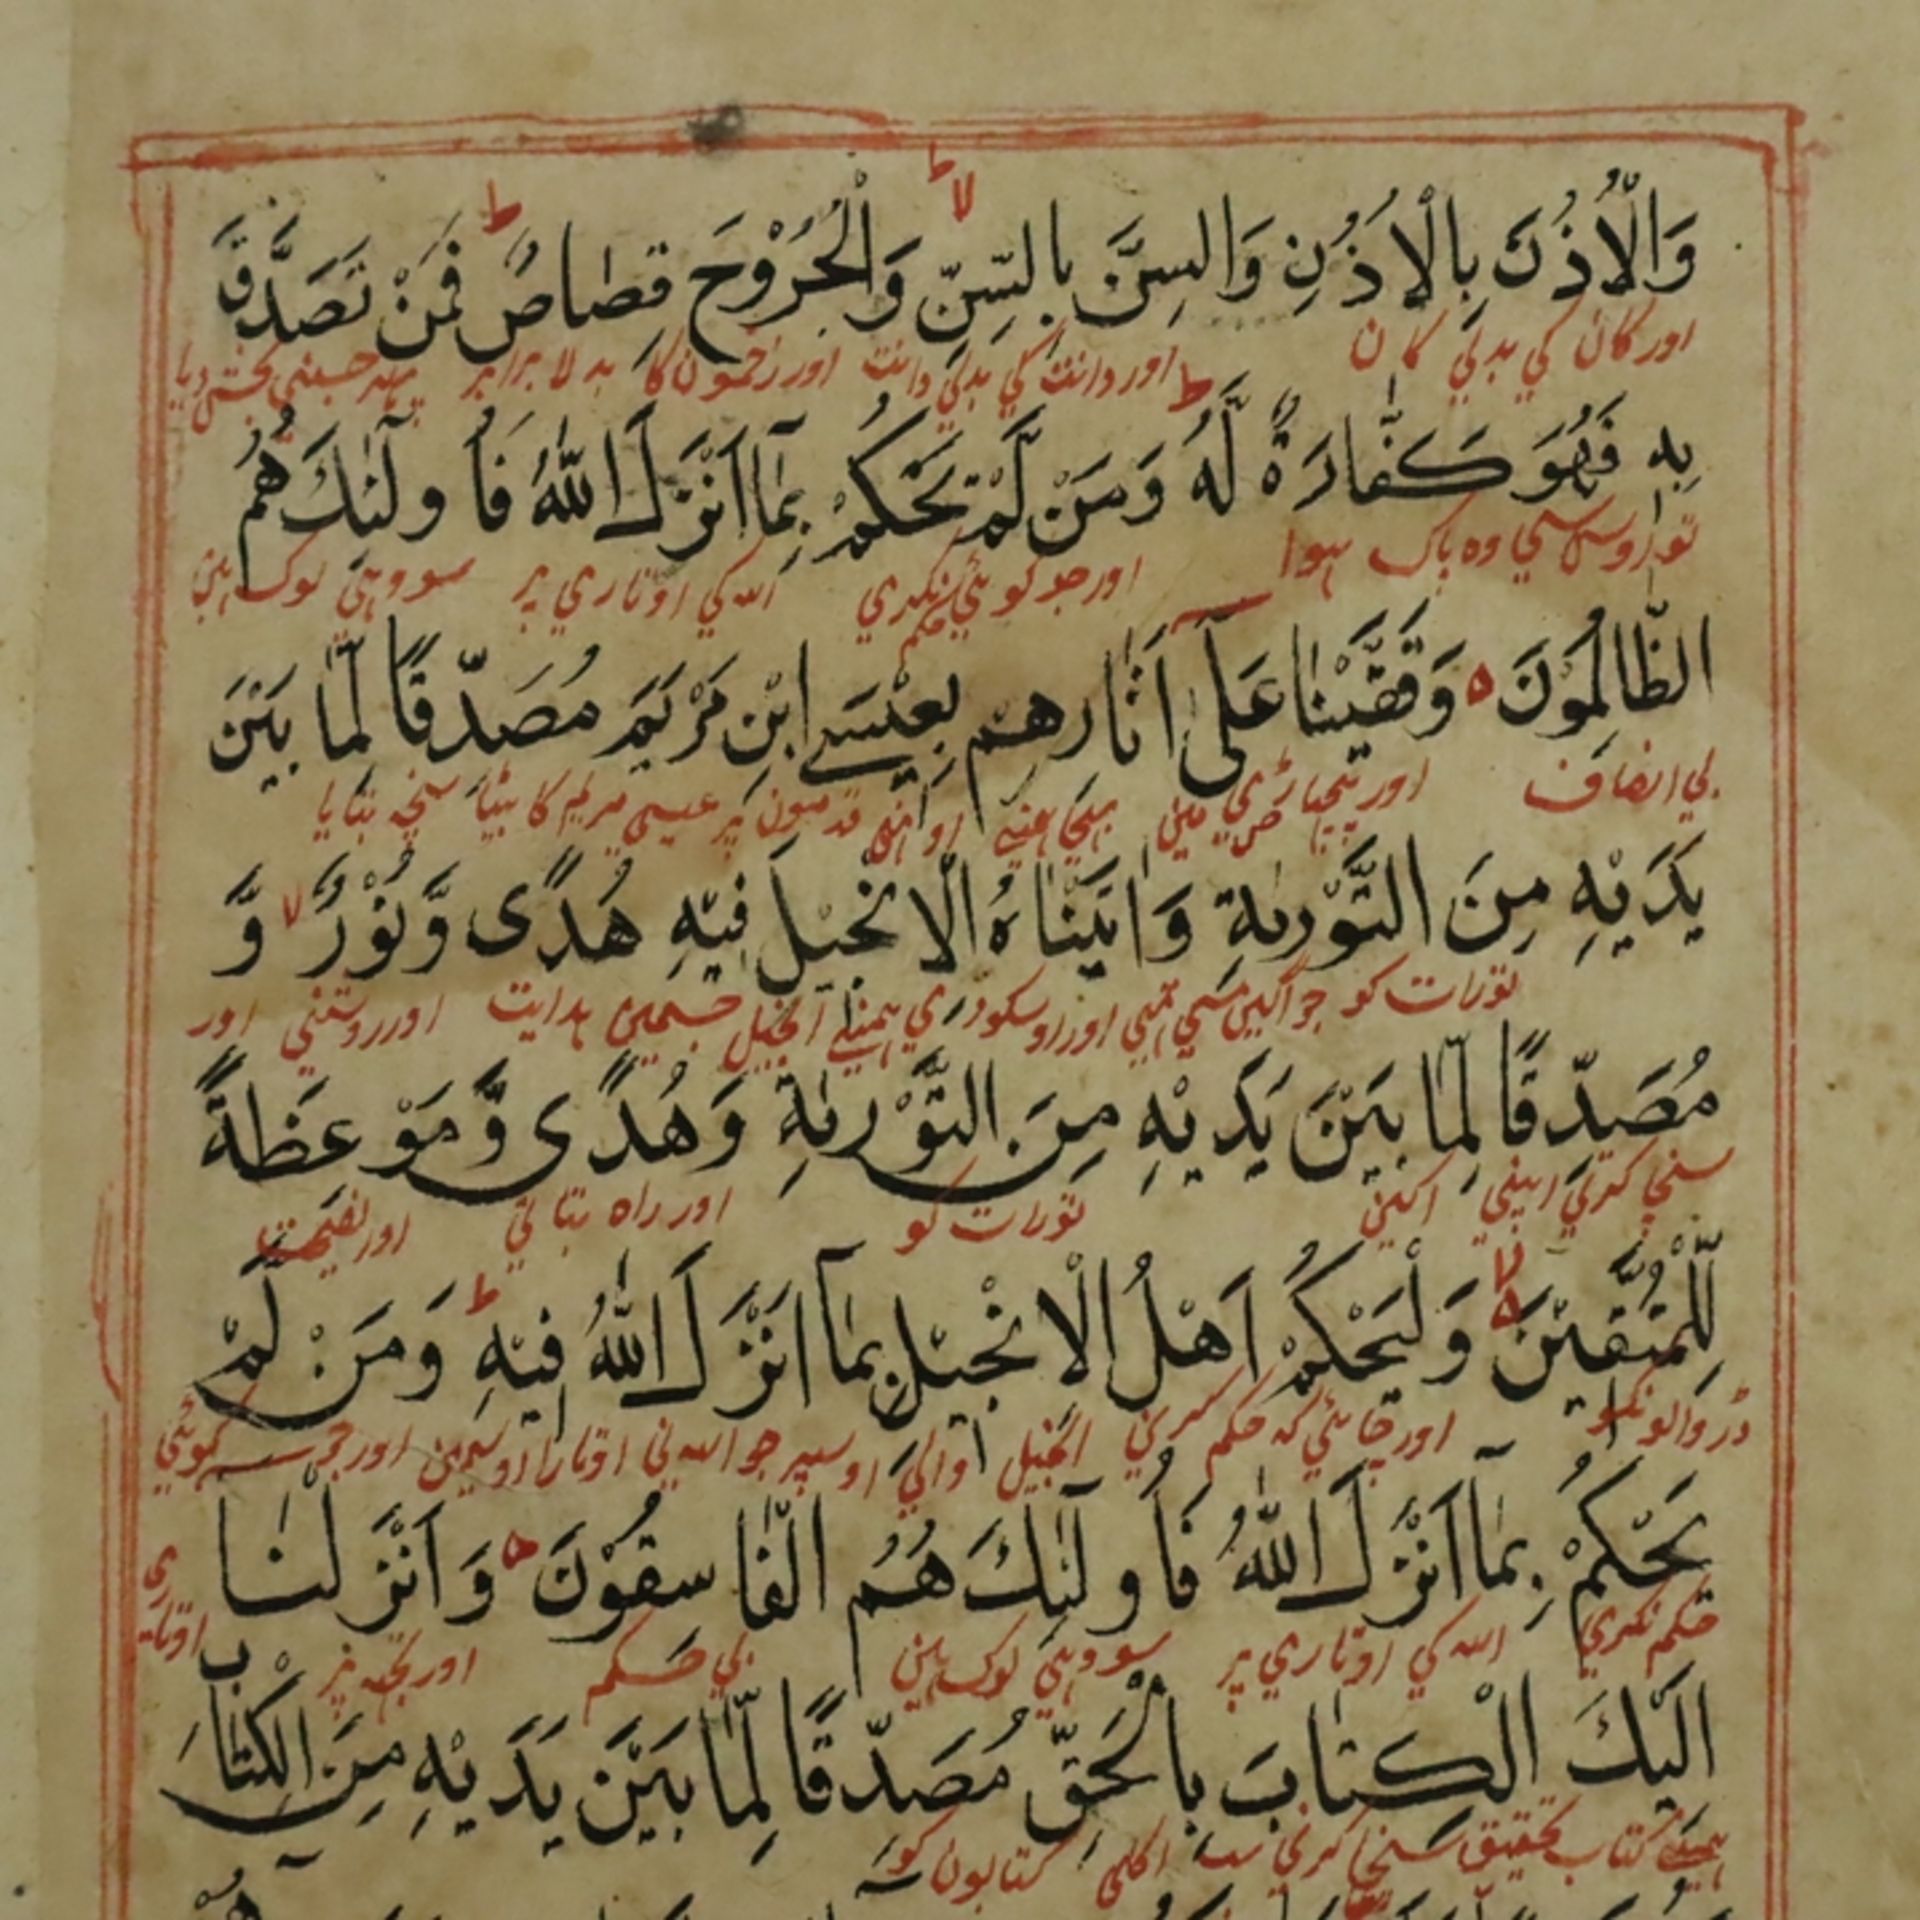 وَالْاُذُنَ بِالْاُذُنِ وَالسِنَّ بِالسِّنِّ وَالْجُرُوْحَ قِصَاصٌ فَمَنْ تَصَدَّقَ
اور كان كي بدلي كان اور دانت كي بدلي دانت اور زخمون كا بدلا برابر پهر جسنى بخش ديا
بِهٖ فَهُوَ كَفَّارَةٌ لَّهٗ وَمَنْ لَّمْ يَحْكُمْ بِمَا اَنْزَلَ اللّٰهُ فَاُولٰئِكَ هُمُ
تو اوس سي وه پاك هوا اور جو كوئي حكم نكري الله كي اوتاري پر سو وهي لوك هين
الظَّالِمُوْنَ وَقَفَّيْنَا عَلٰى اٰثَارِهِمْ بِعِيْسَے ابْنِ مَرْيَمَ مُصَدِّقًا لِّمَا بَيْنَ
بي انصاف اور پچهاڑي مين بهيجا همنے اونهين قدمون پر عيسى مريم كا بيٹا سچ بتايا
يَدَيْهِ مِنَ التَّوْرٰىةِ وَاٰتَيْنَاهُ الْاِنْجِيْلَ فِيْهِ هُدًى وَّنُوْرٌ وَّ
تورات كو جو اكي سي تهي اور اوسكو دي همنے انجيل جسمين هدايت اور روشني اور
مُصَدِّقًا لِّمَا بَيْنَ يَدَيْهِ مِنَ التَّوْرٰىةِ وَهُدًى وَّمَوْعِظَةً
سچا كرتي اپني اكلي تورات كو اور راه بتاتي اور نصيحت
لِّلْمُتَّقِيْنَ وَلْيَحْكُمْ اَهْلُ الْاِنْجِيْلِ بِمَا اَنْزَلَ اللّٰهُ فِيْهِ وَمَنْ لَّمْ
ڈر والونكو اور چاهئي كه حكم كرين انجيل والي اوسپر جو الله ني اوتارا اوسمين اور جو كوئي
يَحْكُمْ بِمَا اَنْزَلَ اللّٰهُ فَاُولٰئِكَ هُمُ الْفَاسِقُوْنَ وَاَنْزَلْنَا
حكم نكري الله كي اوتاري پر سو وهي لوك هين بي حكم اور تجه پر اوتاري
اِلَيْكَ الْكِتَابَ بِالْحَقِّ مُصَدِّقًا لِّمَا بَيْنَ يَدَيْهِ مِنَ الْكِتَابِ
همنے كتاب تحقيق سچا كرتي سب اكلي كتابون كو